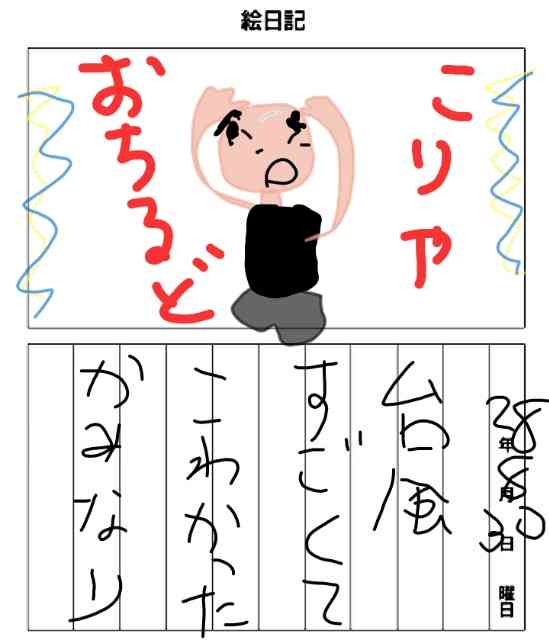 絵日記
こりゃ
おちるど
28年8月30日 曜日
台風
すごくて
こわかった
かみなり